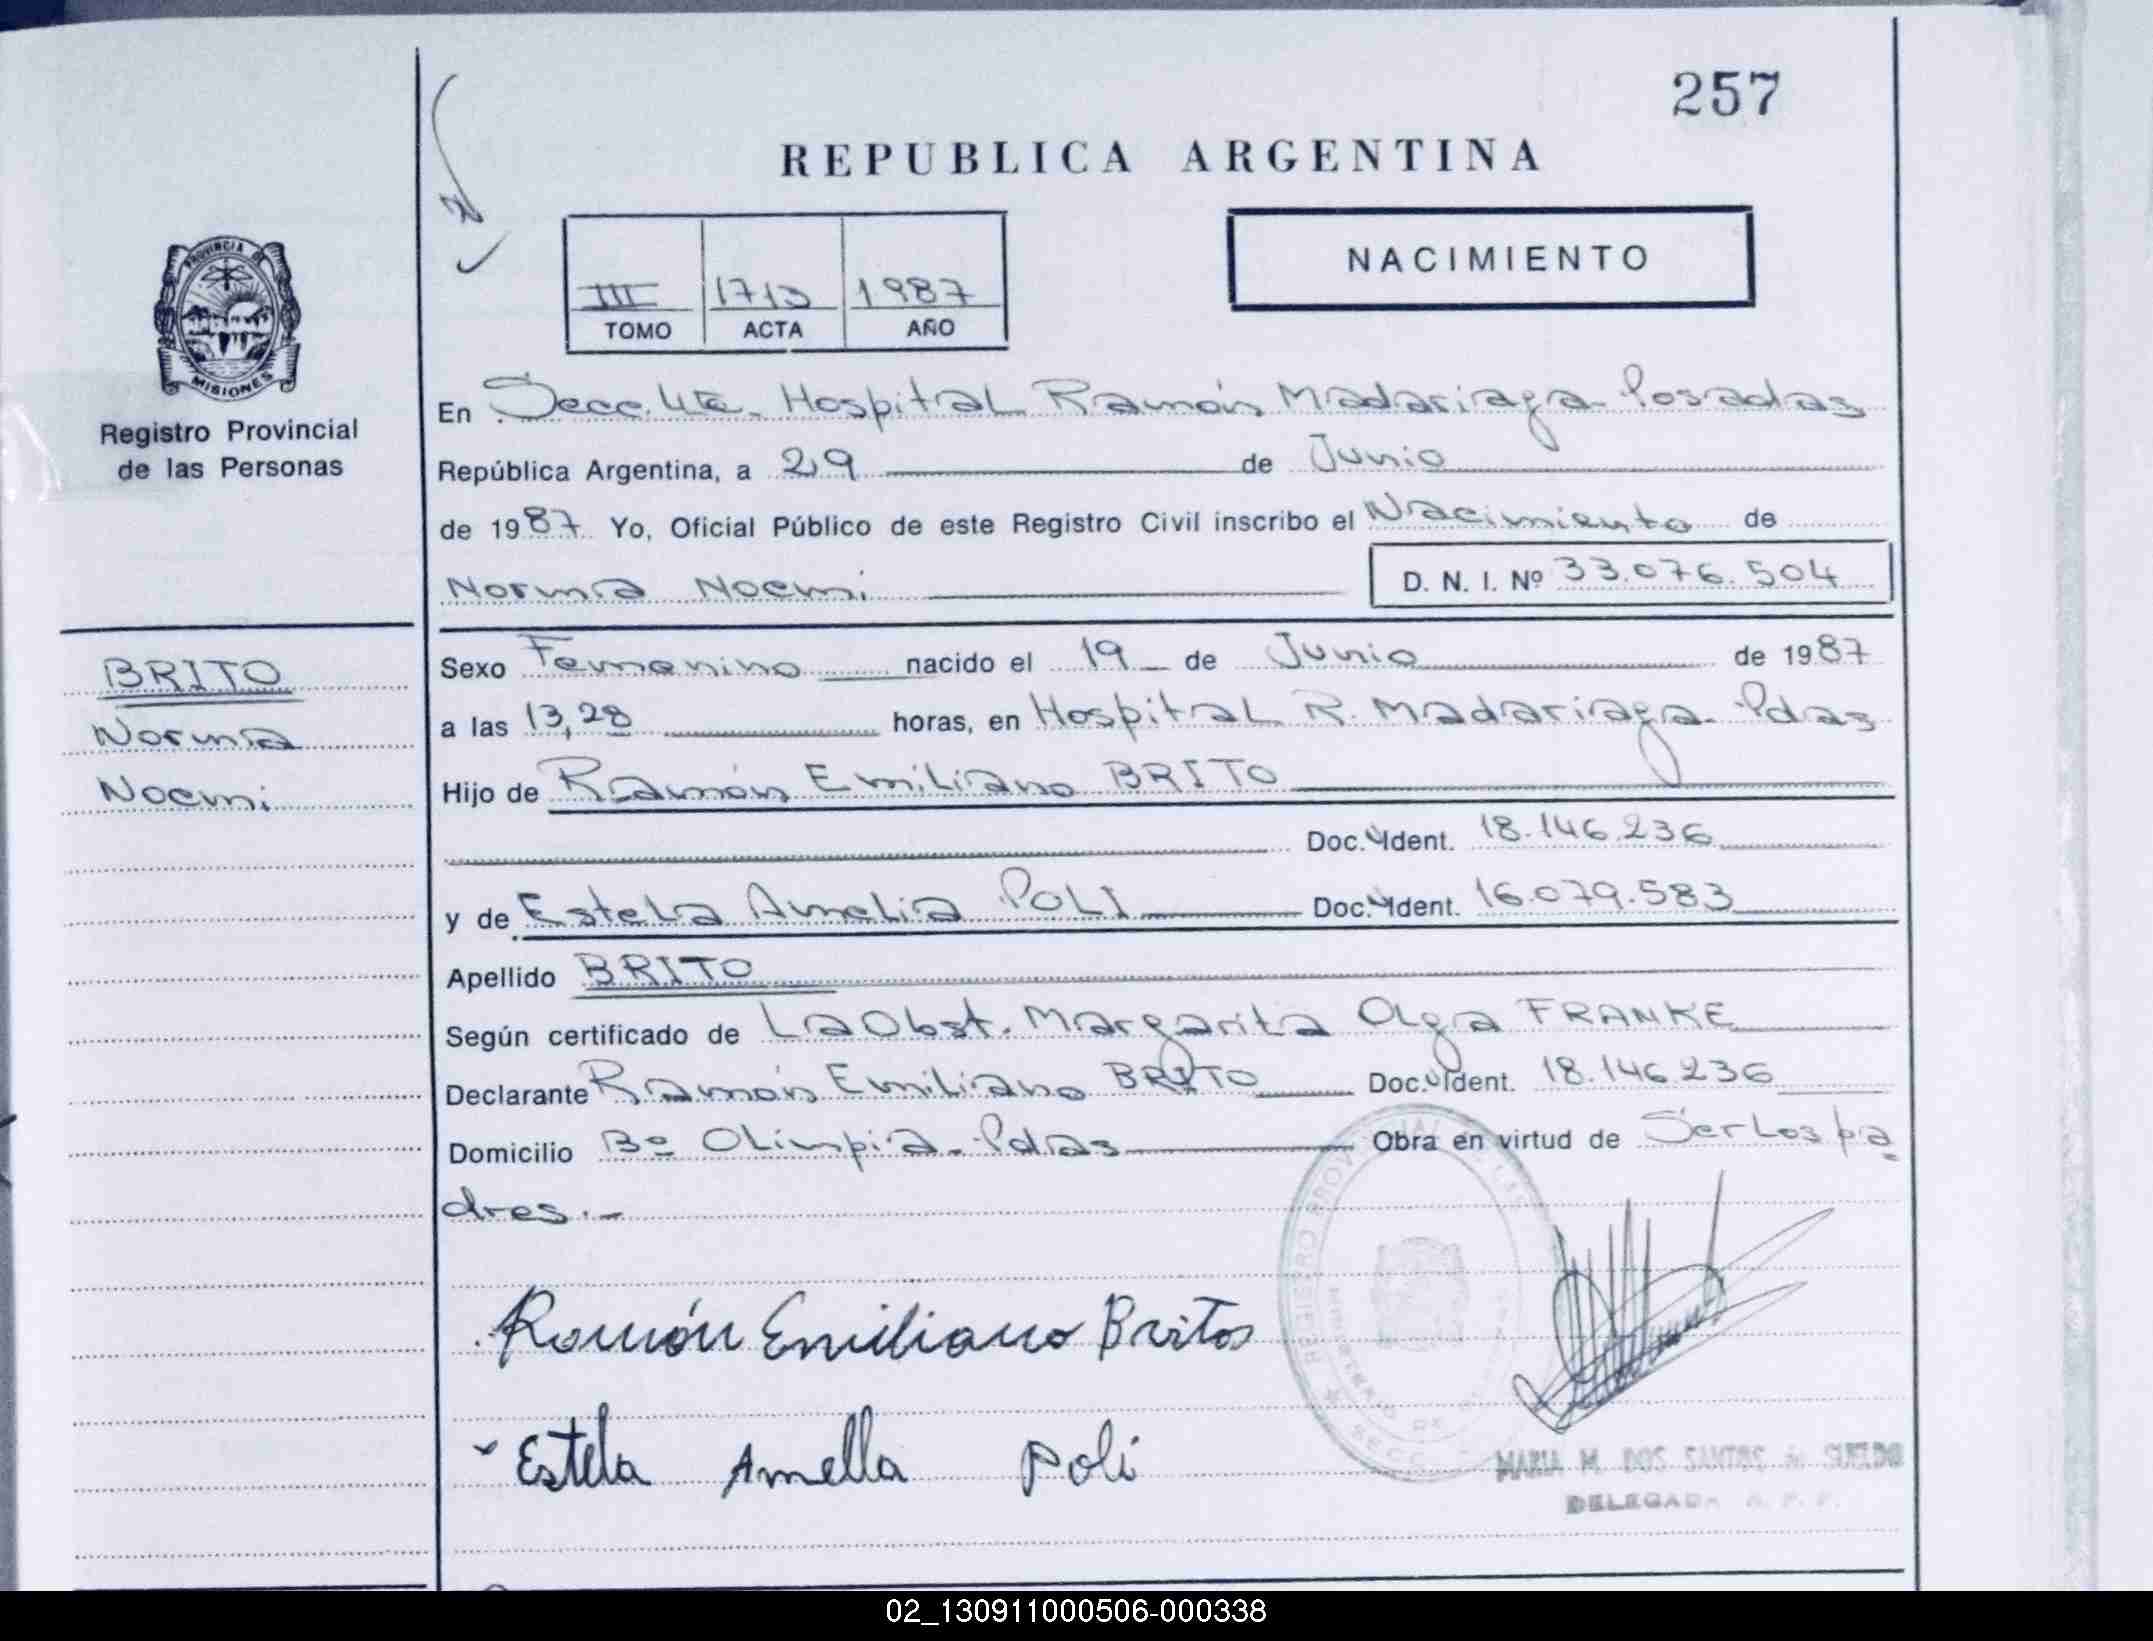 257
REPUBLICA ARGENTINA
NACIMIENTO
III 1713 1987
TOMO ACTA AÑO
PROVINCIA DE
MISIONES
Registro Provincial
de las Personas
En Secc. 4ta. Hospital Ramón Madariaga - Posadas
República Argentina, a 29 de Junio
de 1987. Yo, Oficial Público de este Registro Civil inscribo el Nacimiento de
Norma Noemi D. N. I. Nº 33.076.504
BRITO
Norma
Noemi
Sexo Femenino nacido el 19 de Junio de 1987
a las 13,28 horas, en Hospital R. Madariaga - Pdas
Hijo de Ramón Emiliano BRITO
Doc. Ident. 18.146.236
y de Estela Amelia POLI Doc. Ident. 16.079.583
Apellido BRITO
Según certificado de La Obst. Margarita Olga FRANKE
Declarante Ramón Emiliano BRITO Doc. Ident. 18.146.236
Domicilio Bº Olimpia - Pdas Obra en virtud de Ser los pa
dres.-
Ramón Emiliano Britos
Estela Amella Poli
REGISTRO
SECC
MARIA M. DOS SANTOS de SUELDO
DELEGADA
02_130911000506-000338